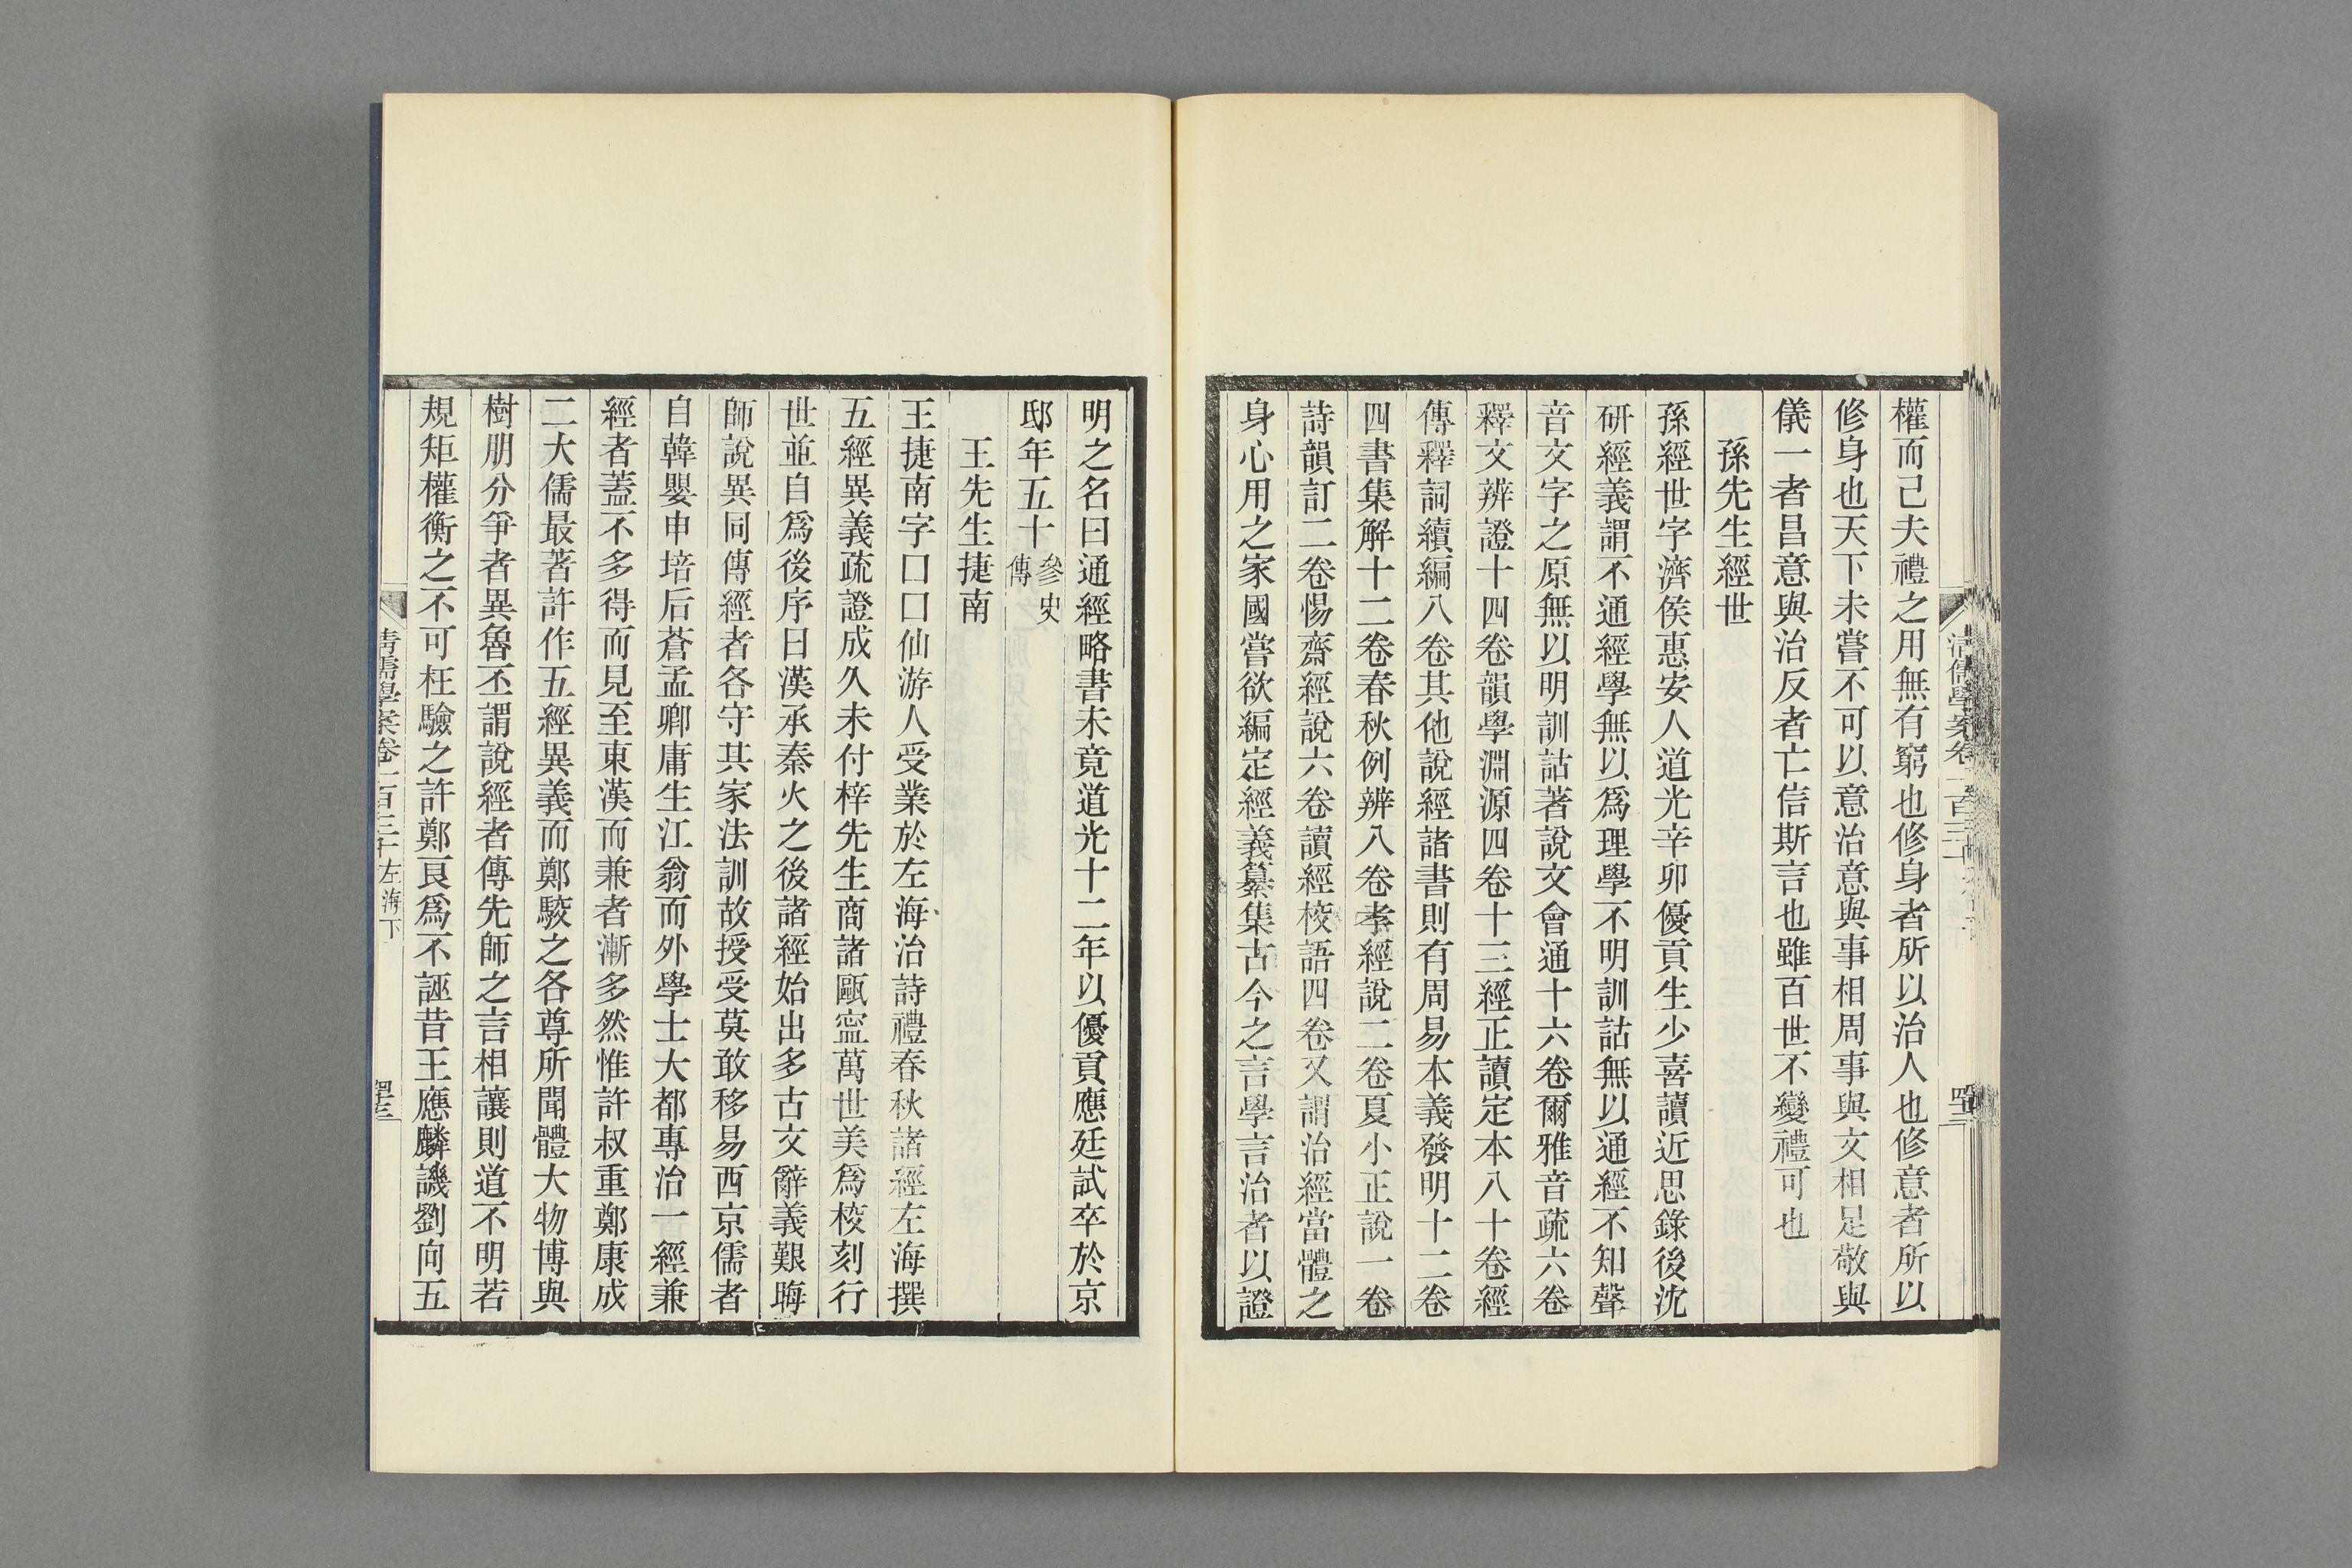 權而已夫禮之用無有窮也修身者所以治人也修意者所以
修身也天下未嘗不可以意治意與事相周事與文相足敬與
儀一者昌意與治反者亡信斯言也雖百世不變禮可也
孫先生經世
孫經世字濟侯惠安人道光辛卯優貢生少喜讀近思錄後沈
研經義謂不通經學無以爲理學不明訓詁無以通經不知聲
音文字之原無以明訓詁著說文會通十六卷爾雅音疏六卷
釋文辨證十四卷韻學淵源四卷十三經正讀定本八十卷經
傳釋詞續編八卷其他說經諸書則有周易本義發明十二卷
四書集解十二卷春秋例辨八卷孝經說二卷夏小正說一卷
詩韻訂二卷惕齋經說六卷讀經校語四卷又謂治經當體之
身心用之家國嘗欲編定經義纂集古今之言學言治者以證
明之名曰通經略書未竟道光十二年以優貢應廷試卒於京
邸年五十參史傳
王先生捷南
王捷南字口口仙游人受業於左海治詩禮春秋諸經左海撰
五經異義疏證成久未付梓先生商諸甌寍萬世美爲校刻行
世並自爲後序曰漢承秦火之後諸經始出多古文辭義艱晦
師說異同傳經者各守其家法訓故授受莫敢移易西京儒者
自韓嬰申培后蒼孟卿庸生江翁而外學士大都專治一經兼
經者蓋不多得而見至東漢而兼者漸多然惟許叔重鄭康成
二大儒最著許作五經異義而鄭駮之各尊所聞體大物博與
樹朋分爭者異魯丕謂說經者傳先師之言相讓則道不明若
規矩權衡之不可枉驗之許鄭良爲不誣昔王應麟譏劉向五
清儒學案卷一百三十左海下